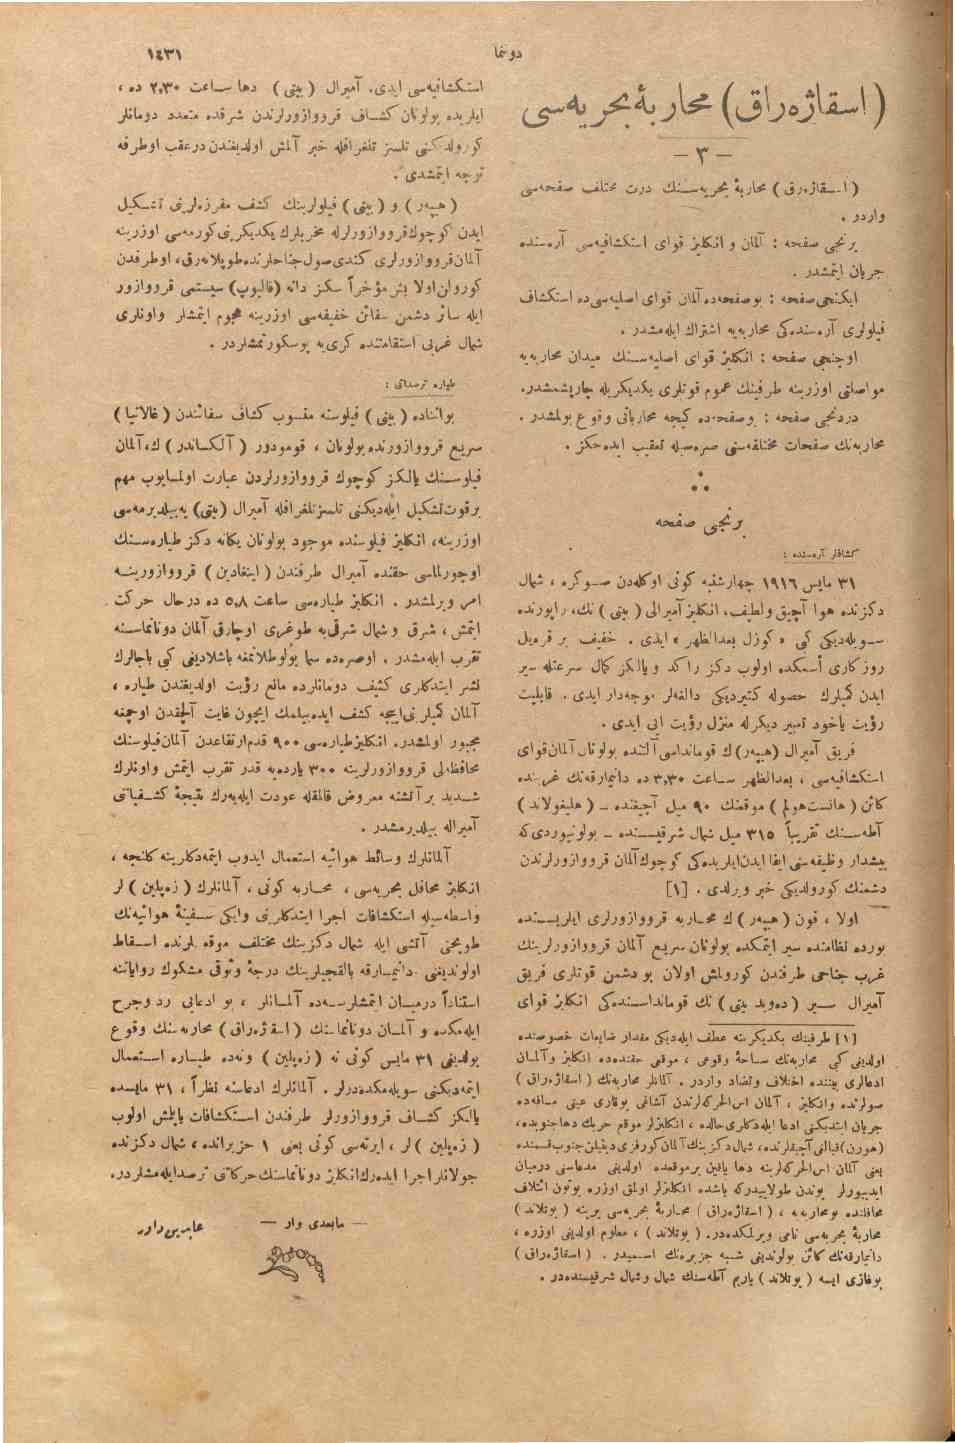 دوننما
١٤٣١
(اسقاژه‌راق) محاربهٔ بحریه‌سی
— ٣ —
(اسقاژه‌رق) محاربهٔ بحریه‌سنك درت مختلف صفحه‌سی
واردر .
برنجی صفحه : آلمان و انكلیز قوای استكشافیه‌سی آره‌سنده
جریان ایتمشدر .
ایكنجی صفحه : بوصفحه‌ده آلمان قوای اصلیه‌سی‌ده استكشاف
فیلولری آره‌سنده‌كی محاربه‌یه اشتراك ایله‌مشدر .
اوچنجی صفحه : انكلیز قوای اصلیه‌سنك میدان محاربه‌یه
مواصلتی اوزرینه طرفینك عموم قوتلری یكدیكریله چارپشمشدر.
دردنجی صفحه : بوصفحه‌ده كیجه محارباتی وقوع بولمشدر .
محاربه‌نك صفحات مختلفه‌سنی صره‌سیله تعقیب ایده‌جكز .
برنجی صفحه
كشافلر آره‌سنده :
٣١ مایس ١٩١٦ چهارشنبه كونی اوكله‌دن صوكره ، شمال
دكزنده هوا آچیق ولطیف، انكلیز آمیرالی (بیتی) نك، راپورنده
سویله‌دیكی كبی « كوزل بعدالظهر » ایدی . خفیف بر قره‌یل
روزكاری أسمكده اولوب دكز راكد و یالكز كمال سرعتله سیر
ایدن كمیلرك حصوله كتیردیكی دالغه‌لر موجه‌دار ایدی . قابلیت
رؤیت یاخود تعبیر دیكرله منزل رؤیت ایی ایدی .
فریق آمیرال (هیپه‌ر) ك قومانداسی آلتنده بولونان آلمان قوای
استكشافیه‌سی ، بعدالظهر ساعت ٣،٣٠ ده دانیمارقه‌نك غربنده
كائن (هانست‌هولم) موقعنك ٩٠ میل آچیغنده ــ (هلیغولاند)
آطه‌سنك تقریباً ٣١٥ میل شمال شرقیسنده ــ بولونیوردی‌كه
پیشدار وظیفه‌سنی ایفا ایدن ایلریده‌كی كوچوك آلمان قرووازورلرندن
دشمنك كورولدیكی خبر ویرلدی . [١]
اولا ، فون (هیپه‌ر) ك محاربه قرووازورلری ایلریسنده
بورده نظامنده سیر ایتمكده بولونان سریع آلمان قرووازورلرینك
غرب جناحی طرفندن كورولمش اولان بو دشمن قوتلری فریق
آمیرال سیر (ده‌وید بیتی) نك قومانداسنده‌كی انكلیز قوای
[١] طرفینك یكدیكرینه عطف ایله‌دیكی مقدار ضایعات خصوصنده
اولدیغی كبی محاربه‌نك ساحهٔ وقوعی ، موقعی حقنده‌ده انكلیز وآلمان
ادعالری بیننده اختلاف وتضاد واردر . آلمانلر محاربه‌نك (اسقاژه‌راق)
صولرنده وانكلیز ، آلمان اس‌الحركه‌لرندن آشاغی یوقاری عینی مسافه‌ده
جریان ایتدیكنی ادعا ایله‌دكلری حالده ، انكلیزلر موقع حربك دها جنوبده،
(هورن) قیالغی آچیقلرنده، شمال دكزینك آلمان كورفزی دینیلن جنوب قسمنده
یعنی آلمان اس‌الحركه‌لرینه دها یاقین برموقعده اولدیغی مدعاسی درمیان
ایدییورلر بوندن طولاییدركه باشده انكلیزلر اولمق اوزره بوتون ائتلاف
محافلنده بومحاربه‌یه ، (اسقاژه‌راق) محاربهٔ بحریه‌سی یرینه (یوتلاند)
محاربهٔ بحریه‌سی نامی ویرلمكده‌در. (یوتلاند) ، معلوم اولدیغی اوزره ،
دانیمارقه‌نك كائن بولوندیغی شبه جزیره‌نك اسمیدر . (اسقاژه‌راق)
بوغازی ایسه (یوتلاند) یاریم آطه‌سنك شمال وشمال شرقیسنده‌در .
استكشافیه‌سی ایدی. آمیرال (بیتی) دها ساعت ٢،٣٠ ده ،
ایلریده بولونان كشاف قرووازورلرندن شرقده متعدد دومانلر
كورولدكنی تلسز تلغرافله خبر آلمش اولدیغندن درعقب اوطرفه
توجه ایتمشدی .
(هیپه‌ر) و (بیتی) فیلولرینك كشف مفرزه‌لرینی تشكیل
ایدن كوچوك قرووازورلرله مخربلرك یكدیكرینی كورمه‌سی اوزرینه
آلمان قرووازورلری كندی صول جناحلرنده طوپلانه‌رق، اوطرفدن
كوروان اولا بش مؤخراً سكز دانه (قالیوپ) سیستمی قرووازور
ایله سائر دشمن سفائن خفیفه‌سی اوزرینه هجوم ایتمشلر واونلری
شمال غربی استقامتنده كری‌یه پوسكورتمشلردر .
طیاره ترصداتی :
بواثناده (بیتی) فیلوسنه منسوب كشاف سفائندن (غالاتیا)
سریع قرووازورنده بولونان ، قومودور (آلكساندر) ك، آلمان
فیلوسنك یالكز كوچوك قرووازورلردن عبارت اولمایوب مهم
برقوت تشكیل ایله‌دیكنی تلسز تلغرافله آمیرال (بیتی) یه بیلدیرمه‌سی
اوزرینه، انكلیز فیلوسنده موجود بولونان یكانه دكز طیاره‌سنك
اوچورلماسی حقنده آمیرال طرفندن (اینغادین) قرووازورینه
امر ویرلمشدر . انكلیز طیاره‌سی ساعت ٥،٨ ده درحال حركت
ایتمش ، شرق وشمال شرقی‌یه طوغری اوچارق آلمان دونانماسنه
تقرب ایله‌مشدر . اوصره‌ده سما بولوطلانمغه باشلادیغی كبی باجالرك
نشر ایتدكلری كثیف دومانلرده مانع رؤیت اولدیغندن طیاره ،
آلمان كمیلرنی ایجه كشف ایده‌بیلمك ایچون غایت آلچقدن اوچمغه
مجبور اولمشدر. انكلیز طیاره‌سی ٩٠٠ قدم ارتفاعدن آلمان فیلوسنك
محافظه‌لی قرووازورلرینه ٣٠٠ یارده‌یه قدر تقرب ایتمش واونلرك
شدید بر آتشنه معروض قالمقله عودت ایله‌یه‌رك نتیجهٔ كشفیاتی
آمیراله بیلدیرمشدر .
آلمانلرك وسائط هوائیه استعمال ایدوب ایتمه‌دكلرینه كلنجه ،
انكلیز محافل بحریه‌سی ، محاربه كونی ، آلمانلرك (زه‌پلین) لر
واسطه‌سیله استكشافات اجرا ایتدكلرنی وایكی سفینهٔ هوائیه‌نك
طوپجی آتشی ایله شمال دكزینك مختلف موقعلرنده اسقاط
اولوندیغنی دانیمارقه بالقجیلرینك درجهٔ وثوقی مشكوك روایاتنه
استناداً درمیان ایتمشلرسه‌ده آلمانلر ، بو ادعایی رد وجرح
ایله‌مكده و آلمان دونانماسنك (اسقاژه‌راق) محاربه‌سنك وقوع
بولدیغی ٣١ مایس كونی نه (زه‌پلین) ونه‌ده طیاره استعمال
ایتمه‌دیكنی سویله‌مكده‌درلر . آلمانلرك ادعاسنه نظراً ، ٣١ مایسده
یالكز كشاف قرووازورلر طرفندن استكشافات یاپلمش اولوب
(زه‌پلین) لر ، ایرته‌سی كونی یعنی ١ حزیرانده ، شمال دكزنده
جولانلر اجرا ایده‌رك انكلیز دونانماسنك حركاتنی ترصد ایله‌مشلردر.
— مابعدی وار —
عابدین داور